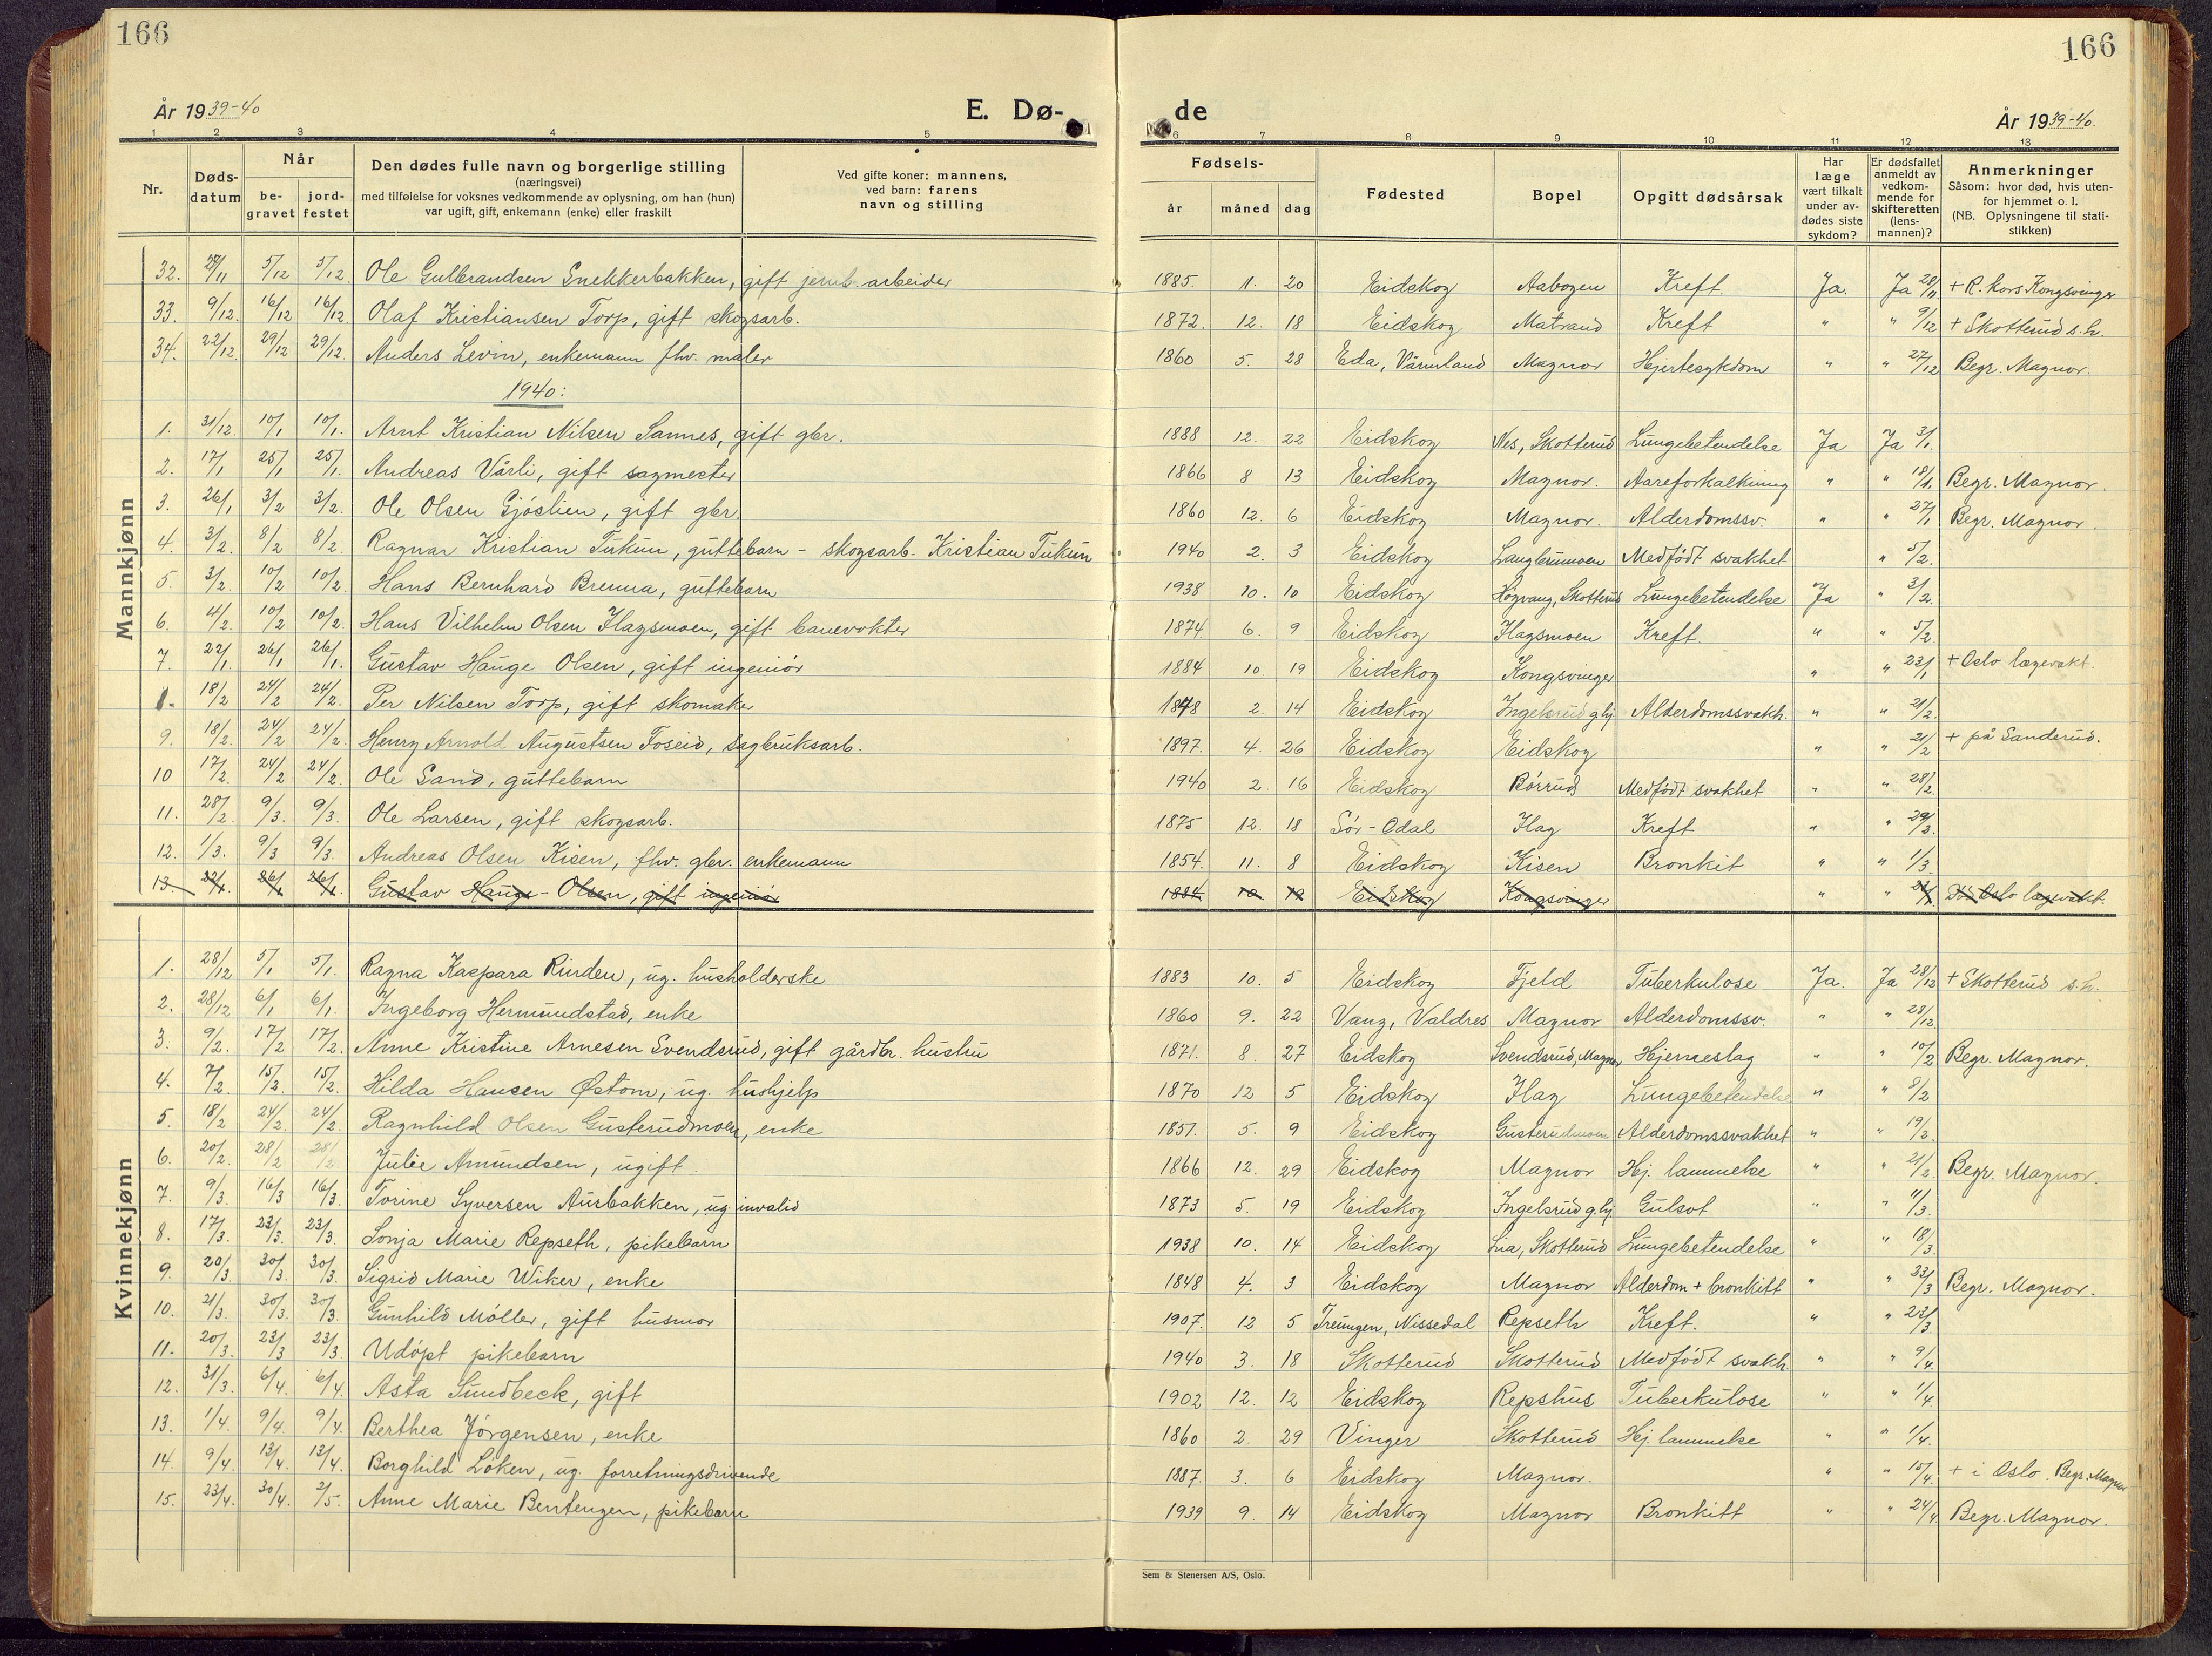 166
166
År 1939-40
E. Dø-
de
År 1939-40.
1 2 3 4 5 6 7 8 9 10 11 12 13
Nr. Døds-datum Når be-gravet jord-festet Den dødes fulle navn og borgerlige stilling (næringsvei) med tilføielse for voksnes vedkommende av oplysning, om han (hun) var ugift, gift, enkemann (enke) eller fraskilt Ved gifte koner: mannens, ved barn: farens navn og stilling Fødsels- år måned dag Fødested Bopel Opgitt dødsårsak Har læge vært tilkalt under av-dødes siste sykdom? Er dødsfallet anmeldt av vedkom-mende for skifteretten (lens-mannen)? Anmerkninger Såsom: hvor død, hvis uten-for hjemmet o. l. (NB. Oplysningene til stati-stikken)
Mannkjønn
32. 27/11 5/12 5/12 Ole Gulbrandsen Snekkerbakken, gift jernb. arbeider 1885. 1. 20 Eidskog Aabogen Kreft Ja. Ja 28/11 + R. kors Kongsvinger
33. 9/12. 16/12 16/12. Olaf Kristiansen Torp, gift skogsarb. 1872. 12. 18 Eidskog Matrand Kreft " " 9/12 + Skotterud s.h.
34. 22/12. 29/12 29/12. Anders Levin, enkemann fhv. maler 1860 5. 28 Eda, Värmland Magnor Hjertesykdom " " 27/12 Begr. Magnor.
1940:
1. 31/12. 10/1 10/1. Arnt Kristian Nilsen Sannes, gift gbr. 1888 12. 22 Eidskog Nes, Skotterud Lungebetendelse Ja Ja 3/1.
2. 17/1 25/1 25/1. Andreas Vårli, gift sagmester 1866 8 13 Eidskog Magnor. Aareforkalkning " " 18/1. Begr. Magnor.
3. 26/1 3/2 3/2. Ole Olsen Gjöslien, gift gbr. 1860 12. 6 Eidskog Magnor. Alderdomssv. " " 27/1 Begr. Magnor.
4. 3/2. 8/2 8/2. Ragnar Kristian Tukun, guttebarn - skogsarb. Kristian Tukun 1940 2. 3 Eidskog Langbrumoen Medfödt svakhet " 5/2.
5. 3/2. 10/2 10/2. Hans Bernhard Brenna, guttebarn 1938 10. 10 Eidskog Hogvang, Skotterud Lungebetendelse Ja " 3/2.
6. 4/2. 10/2 10/2. Hans Vilhelm Olsen Flagsmoen, gift banevokter 1874 6. 9 Eidskog Flagsmoen Kreft. " " 5/2.
7. 22/1. 26/1 26/1. Gustav Hauge Olsen, gift ingeniör 1884 10. 19 Eidskog Kongsvinger " " 23/1 + Oslo lægevakt.
18/2 24/2 24/2. Per Nilsen Torp, gift skomaker 1848 2. 14 Eidskog Ingelsrud g.hj. Alderdomssvakh. " " 21/2.
9. 18/2. 24/2 24/2. Henry Arnold Augustsen Toseid, sagbruksarb. 1897. 4. 26 Eidskog Eidskog " " 21/2 + på Sanderud.
10 17/2. 24/2 24/2. Ole Sand, guttebarn 1940 2. 16 Eidskog Börrud Medfödt svakhet " " 28/2.
11. 28/2 9/3. 9/3. Ole Larsen, gift skogsarb. 1875 12. 18 Sör-Odal Flag Kreft " " 29/3.
12. 1/3. 9/3 9/3. Andreas Olsen Kisen, fhv. gbr. enkemann 1854. 11. 8 Eidskog Kisen Bronkit " " 1/3.
13. 22/1. 26/1 26/1. Gustav Hauge-Olsen, gift ingeniör 1884. 10 19 Eidskog Kongsvinger " " 23/1 Död Oslo lægevakt.
Kvinnekjønn
1. 28/12 5/1 5/1. Ragna Kaspara Rinden, ug. husholderske 1883 10. 5 Eidskog Fjeld Tuberkulose Ja. Ja 28/12 + Skotterud s.h.
2. 28/12 6/1 6/1. Ingeborg Hermundstad, enke 1860 9. 22 Vang, Valdres Magnor Alderdomssv. " " 28/12.
3. 9/2. 17/2 17/2. Anne Kristine Arnesen Svendsrud, gift gårdbr. hustru 1871. 8. 27 Eidskog Svendsrud, Magnor Hjerneslag " " 10/2 Begr. Magnor.
4. 7/2. 15/2. 15/2. Hilda Hansen Østom, ug. hushjelp 1870 12 5 Eidskog Flag Lungebetendelse " " 8/2
5. 18/2 24/2. 24/2. Ragnhild Olsen Gusterudmoen, enke 1851. 5. 9 Eidskog Gusterudmoen Alderdomssvakhet " " 19/2.
6. 20/2. 28/2 28/2. Julie Amundsen, ugift. 1866 12. 29 Eidskog Magnor Hj. lammelse " " 21/2 Begr. Magnor.
7. 9/3. 16/3 16/3. Torine Syversen Aurbakken, ug. invalid 1873 5. 19 Eidskog Ingelsrud g.hj. Gulsot " " 11/3.
8. 17/3. 23/3. 23/3. Sonja Marie Repseth, pikebarn 1938 10. 14 Eidskog Lia, Skotterud Lungebetendelse " " 18/3.
9. 20/3. 30/3. 30/3. Sigrid Marie Wiker, enke 1848 4. 3 Eidskog Magnor Alderdom + bronkitt " " 23/3 Begr. Magnor.
10. 21/3. 30/3. 30/3. Gunhild Möller, gift husmor 1907. 12 5 Treungen, Nissedal Repseth Kreft. " " 23/3.
11. 20/3. 23/3 23/3. Udöpt pikebarn 1940 3. 18 Skotterud Skotterud Medfödt svakh. " " 9/4.
12. 31/3. 6/4. 6/4. Asta Sundbeck, gift 1902 12. 12 Eidskog Repshus Tuberkulose " " 1/4
13. 1/4. 9/4. 9/4. Berthea Jörgensen, enke 1860 2. 29 Vinger Skotterud Hj. lammelse " " 1/4.
14. 9/4. 13/4. 13/4. Borghild Löken, ug. forretningsdrivende 1887. 3. 6 Eidskog Magnor. " " 15/4. + i Oslo. Begr. Magnor
15. 23/4. 30/4. 2/5. Anne Marie Bentengen, pikebarn 1939 9. 14 Eidskog Magnor Bronkitt " " 24/4 Begr. Magnor.
Sem & Stenersen A/S, Oslo.